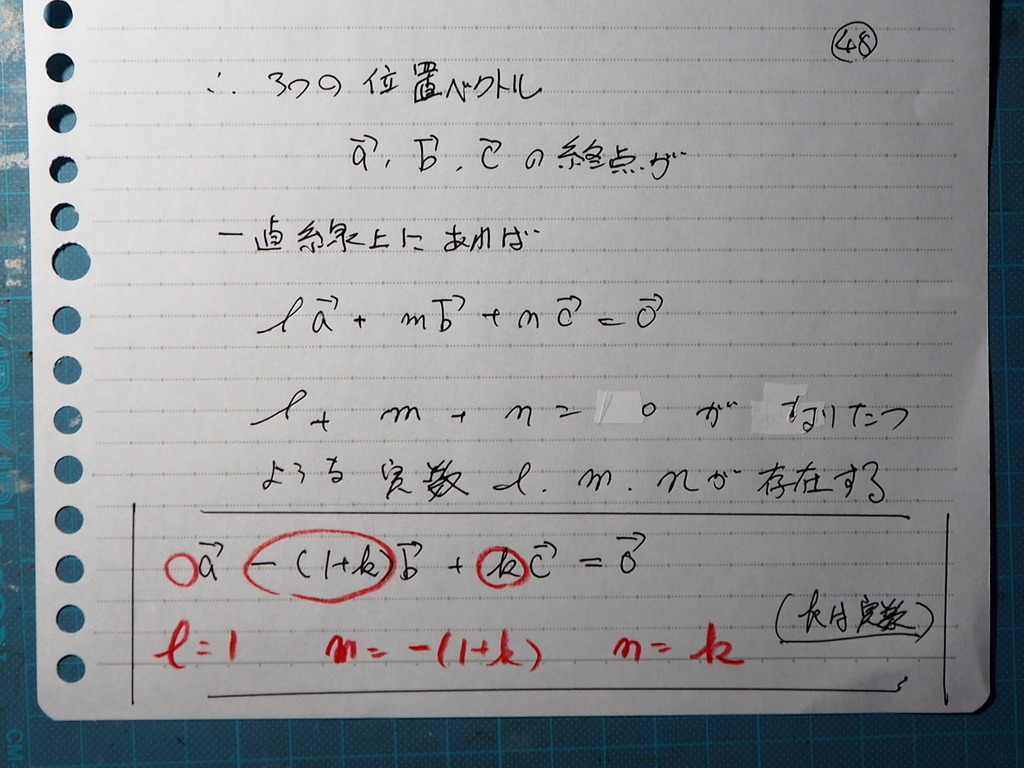 ㊽
∴ 3つの位置ベクトル
a⃗, b⃗, c⃗ の終点が
一直線上にあれば
l a⃗ + m b⃗ + n c⃗ = 0⃗
l + m + n = 0 が なりたつ
ような 実数 l. m. nが 存在する
a⃗ - (1+k) b⃗ + k c⃗ = 0⃗
(kは実数)
l = 1 m = -(1+k) n = k
CM